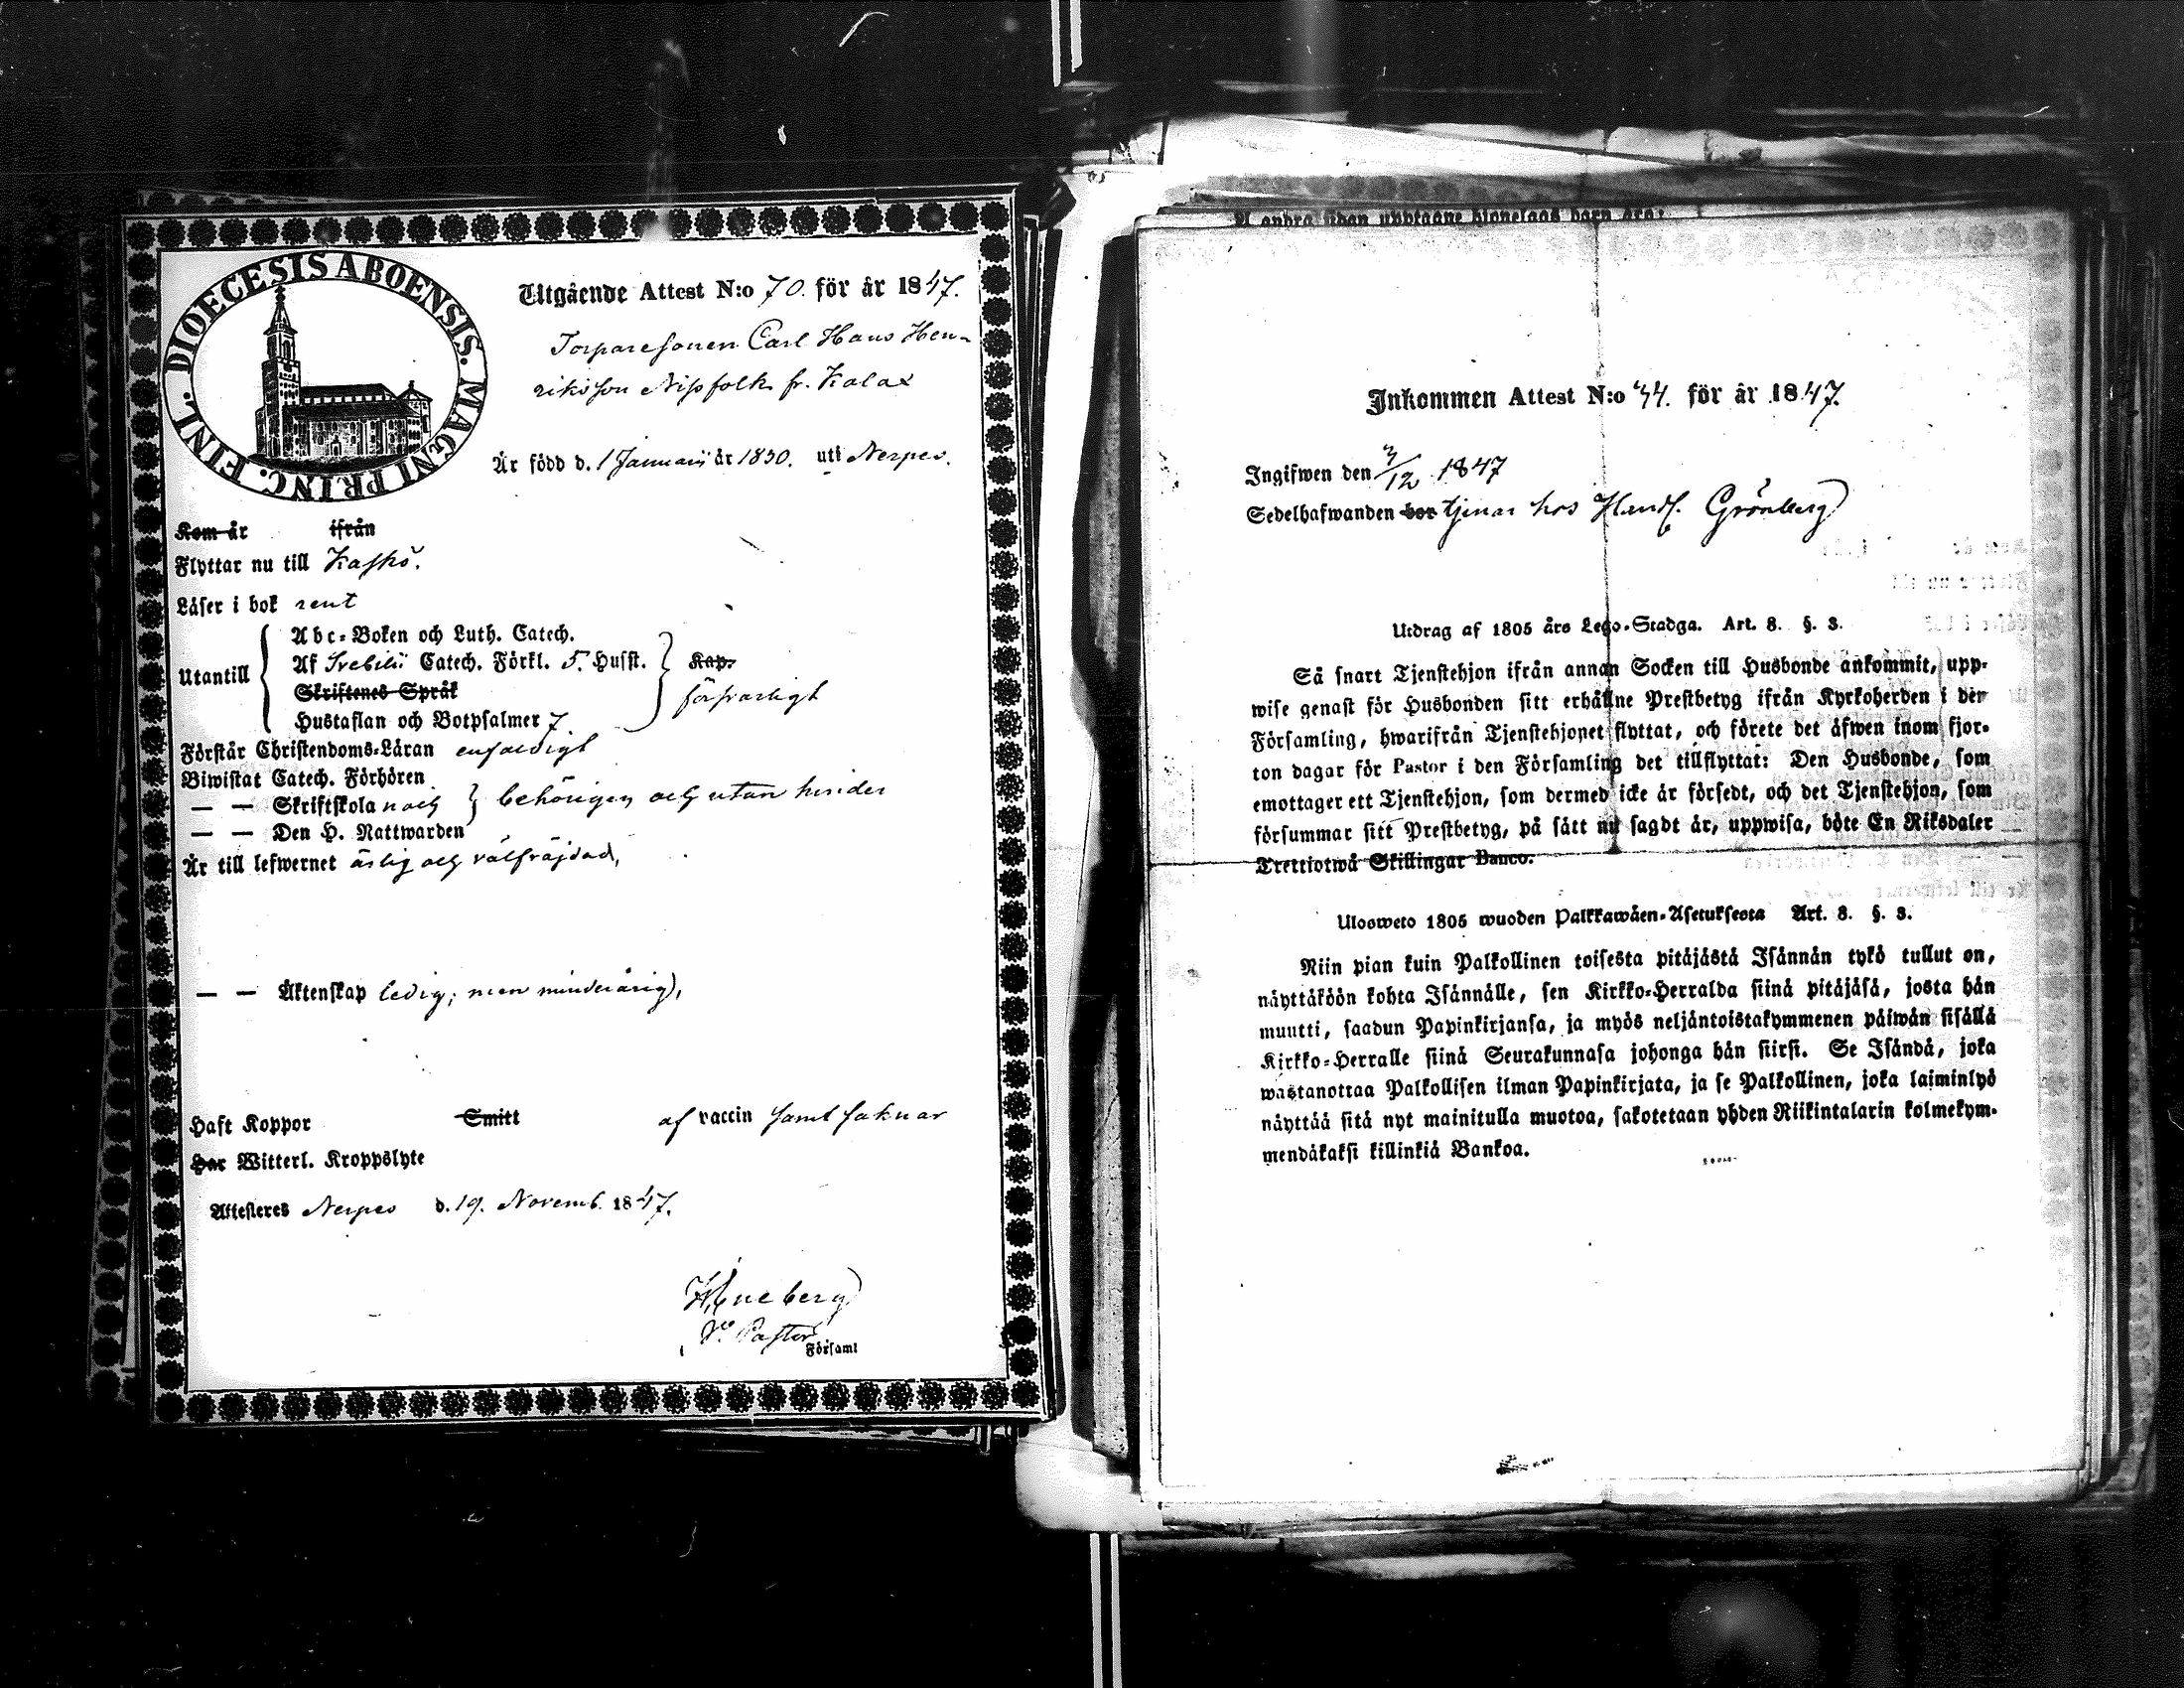 DIOECESIS ABOENSIS. MAGNI PRINC. FINL.
Utgående Attest N:o 70. för år 1847.
Torparesonen Carl Hans Hen-
riksson Nissfolk fr. Kalax
Är född d. 1 Januarii år 1830. uti Nerpes.
Kom år ifrån
Flyttar nu till Kaskö.
Läser i bok rent
Utantill
Abc-Boken och Luth. Catech.
Af Svebilii Catech. Förkl. 5. Hufst. Kap.
Skriftenes Språk
försvarligt
Hustaflan och Botpsalmer 7
Förstår Christendoms-Läran enfaldigt
Biwistat Catech. Förhören
— — Skriftskola och behörigen och utan hinder
— — Den H. Nattwarden
Är till lefwernet ärlig och välfräjdad,
— — Äktenskap ledig; men minderårig,
Haft Koppor Smitt af vaccin samt saknar
Har Witterl. Kroppslyte
Attesteres Nerpes d. 19. Novemb. 1847.
Heneberg
Vc. Pastor
Församl
Å andra sidan upptagne
Inkommen Attest N:o 44. för år 1847.
Ingifwen den 3/12 1847
Sedelhafwanden bor tjenar hos Handl. Grönberg
Utdrag af 1805 års Lego-Stadga. Art. 8. §. 3.
Så snart Tjenstehjon ifrån annan Socken till Husbonde ankommit, upp-
wise genast för Husbonden sitt erhållne Prestbetyg ifrån Kyrkoherden i den
Församling, hwarifrån Tjenstehjonet flyttat, och förete det äfwen inom fjor-
ton dagar för Pastor i den Församling det tillflyttat: Den Husbonde, som
emottager ett Tjenstehjon, som dermed icke är försedt, och det Tjenstehjon, som
försummar sitt Prestbetyg, på sätt nu sagdt är, uppwisa, böte En Riksdaler
Trettiotwå Skillingar Banco.
Ulosweto 1805 wuoden Palkkawäen-Asetuksesta Art. 8. §. 3.
Niin pian kuin Palkollinen toisesta pitäjästä Isännän tykö tullut on,
näyttäköön kohta Isännälle, sen Kirkko-Herralda siinä pitäjäsä, josta hän
muutti, saadun Papinkirjansa, ja myös neljäntoistakymmenen päiwän sisällä
Kirkko-Herralle siinä Seurakunnasa johonga hän siirsi. Se Isändä, joka
wastanottaa Palkollisen ilman Papinkirjata, ja se Palkollinen, joka laiminlyö
näyttää sitä nyt mainitulla muotoa, sakotetaan yhden Riikintalarin kolmekym-
mendäkaksi killinkiä Bankoa.